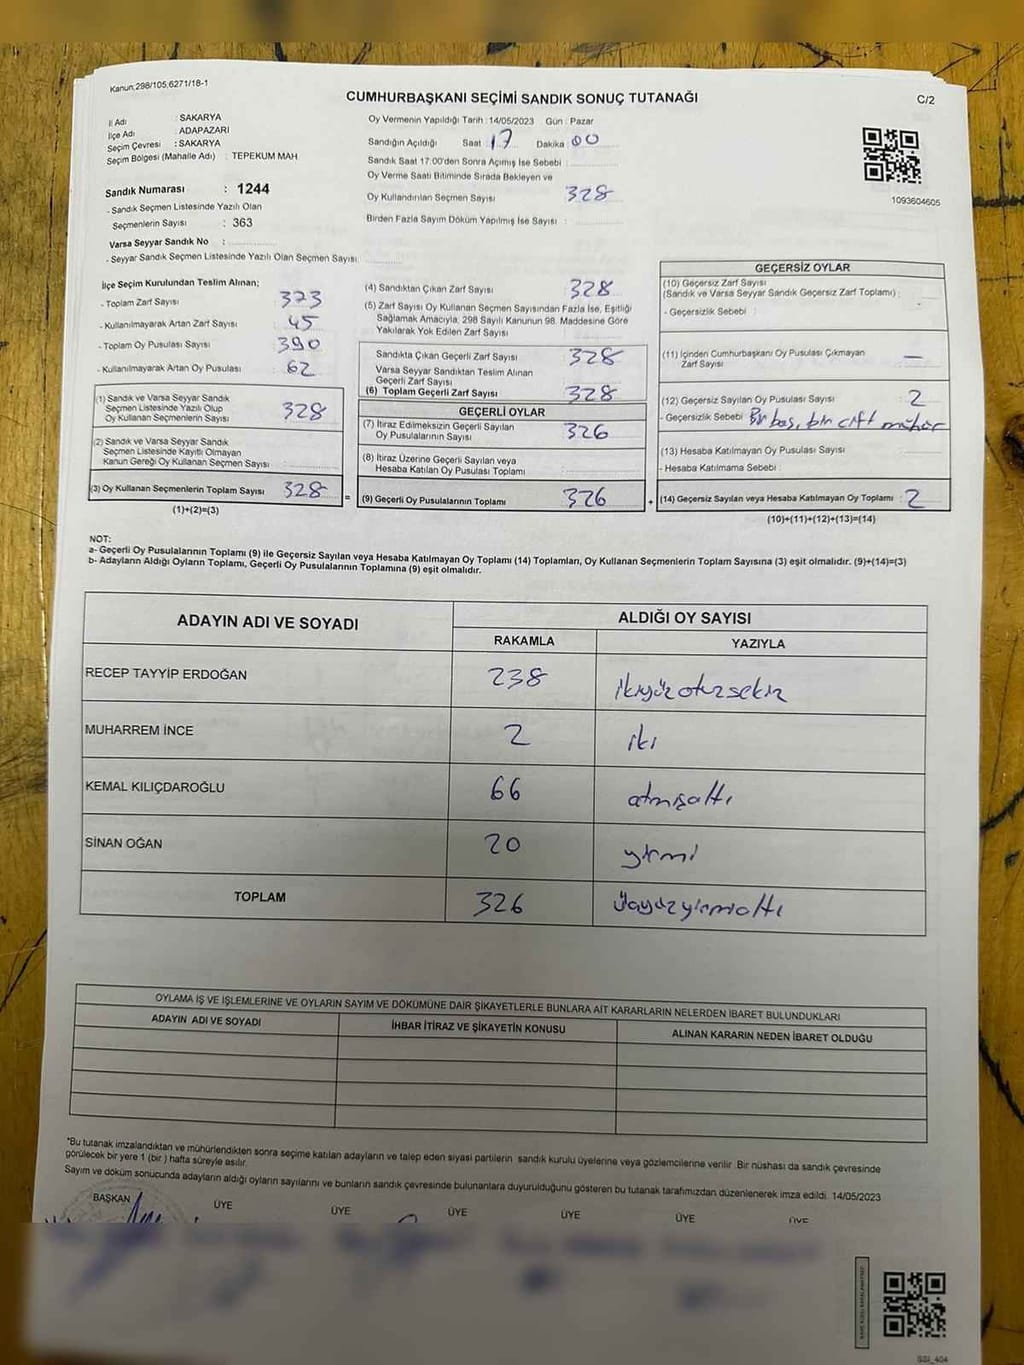 Kanun,298/105,6271/18-1
CUMHURBAŞKANI SEÇİMİ SANDIK SONUÇ TUTANAĞI
C/2
İl Adı : SAKARYA
İlçe Adı : ADAPAZARI
Seçim Çevresi : SAKARYA
Seçim Bölgesi (Mahalle Adı) : TEPEKUM MAH
Sandık Numarası : 1244
- Sandık Seçmen Listesinde Yazılı Olan
Seçmenlerin Sayısı : 363
Varsa Seyyar Sandık No :
- Seyyar Sandık Seçmen Listesinde Yazılı Olan Seçmen Sayısı
Oy Vermenin Yapıldığı Tarih : 14/05/2023 Gün : Pazar
Sandığın Açıldığı Saat 17 Dakika 00
Sandık Saat 17:00'den Sonra Açımış İse Sebebi
Oy Verme Saati Bitiminde Sırada Bekleyen ve
Oy Kullandırılan Seçmen Sayısı 328
Birden Fazla Sayım Döküm Yapılmış İse Sayısı :
1093604605
İlçe Seçim Kurulundan Teslim Alınan;
- Toplam Zarf Sayısı 373
- Kullanılmayarak Artan Zarf Sayısı 45
- Toplam Oy Pusulası Sayısı 390
- Kullanılmayarak Artan Oy Pusulası 62
(1) Sandık ve Varsa Seyyar Sandık
Seçmen Listesinde Yazılı Olup
Oy Kullanan Seçmenlerin Sayısı 328
(2) Sandık ve Varsa Seyyar Sandık
Seçmen Listesinde Kayıtlı Olmayan
Kanun Gereği Oy Kullanan Seçmen Sayısı
(3) Oy Kullanan Seçmenlerin Toplam Sayısı 328 =
(1)+(2)=(3)
(4) Sandıktan Çıkan Zarf Sayısı 328
(5) Zarf Sayısı Oy Kullanan Seçmen Sayısından Fazla İse, Eşitliği
Sağlamak Amacıyla, 298 Sayılı Kanunun 98. Maddesine Göre
Yakılarak Yok Edilen Zarf Sayısı
Sandıkta Çıkan Geçerli Zarf Sayısı 328
Varsa Seyyar Sandıktan Teslim Alınan
Geçerli Zarf Sayısı
(6) Toplam Geçerli Zarf Sayısı 328
GEÇERLİ OYLAR
(7) İtiraz Edilmeksizin Geçerli Sayılan
Oy Pusulalarının Sayısı 326
(8) İtiraz Üzerine Geçerli Sayılan veya
Hesaba Katılan Oy Pusulası Toplamı
(9) Geçerli Oy Pusulalarının Toplamı 326 +
GEÇERSİZ OYLAR
(10) Geçersiz Zarf Sayısı
(Sandık ve Varsa Seyyar Sandık Geçersiz Zarf Toplamı) :
- Geçersizlik Sebebi :
(11) İçinden Cumhurbaşkanı Oy Pusulası Çıkmayan
Zarf Sayısı —
(12) Geçersiz Sayılan Oy Pusulası Sayısı 2
- Geçersizlik Sebebi Bir boş, bir çift mühür
(13) Hesaba Katılmayan Oy Pusulası Sayısı
- Hesaba Katılmama Sebebi :
(14) Geçersiz Sayılan veya Hesaba Katılmayan Oy Toplamı : 2
(10)+(11)+(12)+(13)=(14)
NOT:
a- Geçerli Oy Pusulalarının Toplamı (9) ile Geçersiz Sayılan veya Hesaba Katılmayan Oy Toplamı (14) Toplamları, Oy Kullanan Seçmenlerin Toplam Sayısına (3) eşit olmalıdır. (9)+(14)=(3)
b- Adayların Aldığı Oyların Toplamı, Geçerli Oy Pusulalarının Toplamına (9) eşit olmalıdır.
ADAYIN ADI VE SOYADI ALDIĞI OY SAYISI
RAKAMLA YAZIYLA
RECEP TAYYİP ERDOĞAN 238 ikiyüzotuzsekiz
MUHARREM İNCE 2 iki
KEMAL KILIÇDAROĞLU 66 atmışaltı
SİNAN OĞAN 20 yirmi
TOPLAM 326 üçyüzyirmialtı
OYLAMA İŞ VE İŞLEMLERİNE VE OYLARIN SAYIM VE DÖKÜMÜNE DAİR ŞİKAYETLERLE BUNLARA AİT KARARLARIN NELERDEN İBARET BULUNDUKLARI
ADAYIN ADI VE SOYADI İHBAR İTİRAZ VE ŞİKAYETİN KONUSU ALINAN KARARIN NEDEN İBARET OLDUĞU
*Bu tutanak imzalandıktan ve mühürlendikten sonra seçime katılan adayların ve talep eden siyasi partilerin sandık kurulu üyelerine veya gözlemcilerine verilir. Bir nüshası da sandık çevresinde
görülecek bir yere 1 (bir ) hafta süreyle asılır.
Sayım ve döküm sonucunda adayların aldığı oyların sayılarını ve bunların sandık çevresinde bulunanlara duyurulduğunu gösteren bu tutanak tarafımızdan düzenlenerek imza edildi. 14/05/2023
BAŞKAN ÜYE ÜYE ÜYE ÜYE ÜYE ÜYE
SSI_404